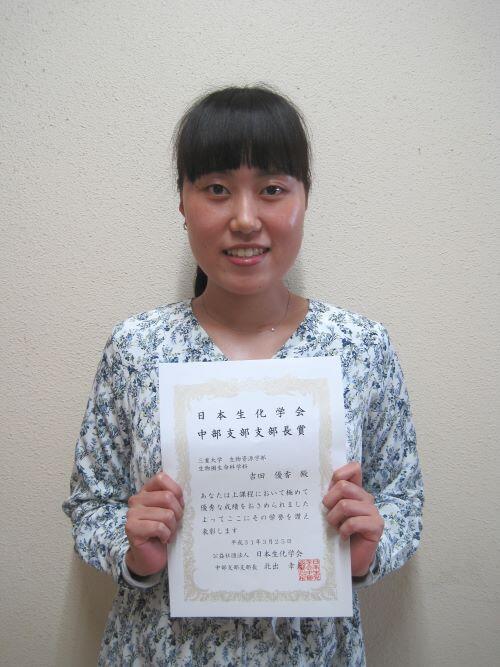 日本生化学会
中部支部支部長賞
三重大学 生物資源学部
生物圏生命科学科
吉田 優香 殿
あなたは上課程において極めて
優秀な成績をおさめられました
よってここにその学誉を讃え
表彰します
平成31年3月25日
公益社団法人 日本生化学会
中部支部支部長 北出 幸